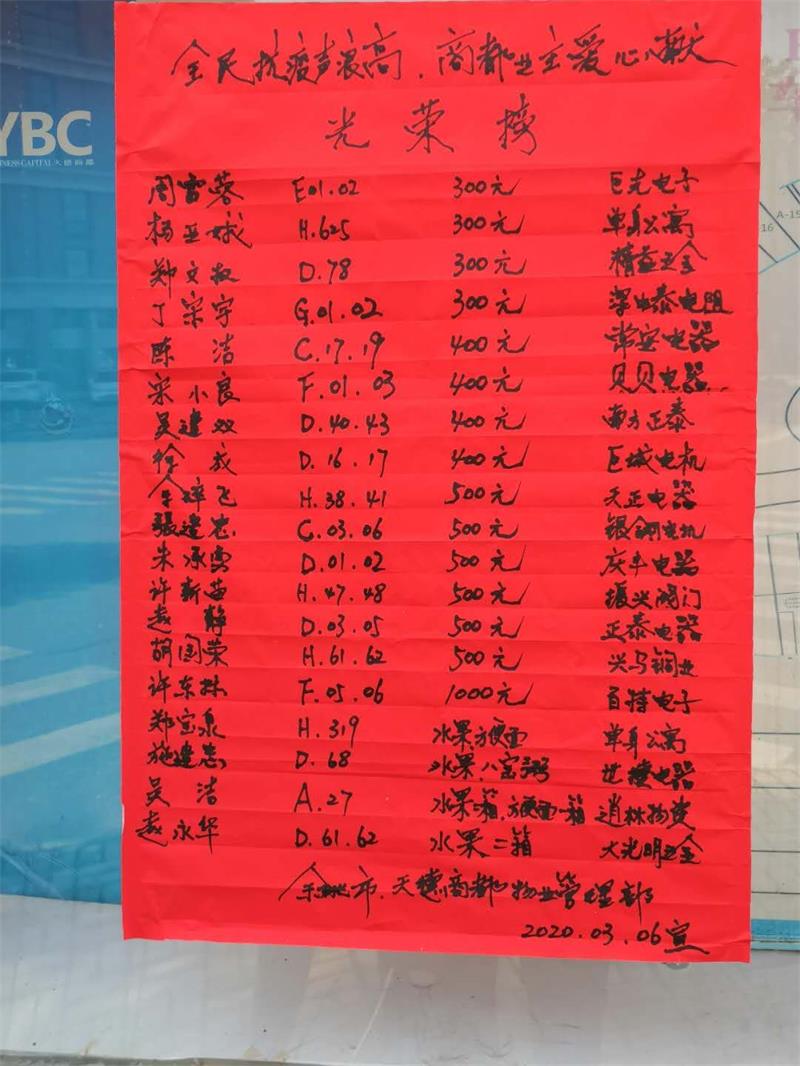 YBC
INESS CAPITAL 天德商都
全民抗疫声浪高.商都业主爱心献
光荣榜
周雷蓉 E01.02 300元 巨光电子
杨亚娥 H.625 300元 单身公寓
郑文 D.78 300元 精益五金
丁宗宇 G.01.02 300元 深中泰电阻
陈洁 C.17.19 400元 常安电器
宋小良 F.01.03 400元 贝贝电器
吴建双 D.40.43 400元 南方正泰
徐成 D.16.17 400元 巨城电机
飞 H.38.41 500元 天正电器
張建忠 C.03.06 500元 银 电机
朱承勇 D.01.02 500元 庆丰电器
许新苗 H.47.48 500元 振兴阀门
赵静 D.03.05 500元 正泰电器
胡国荣 H.61.62 500元 兴马铜业
许东林 F.05.06 1000元 百特电子
郑宝泉 H.319 水果.方便面 单身公寓
施建忠 D.68 水果.八宝粥 电器
吴洁 A.27 水果一箱.方便面一箱 逍林物资
赵永华 D.61.62 水果二箱 大光明五金
余姚市.天德商都物业管理部
2020.03.06宣
A-15
-16